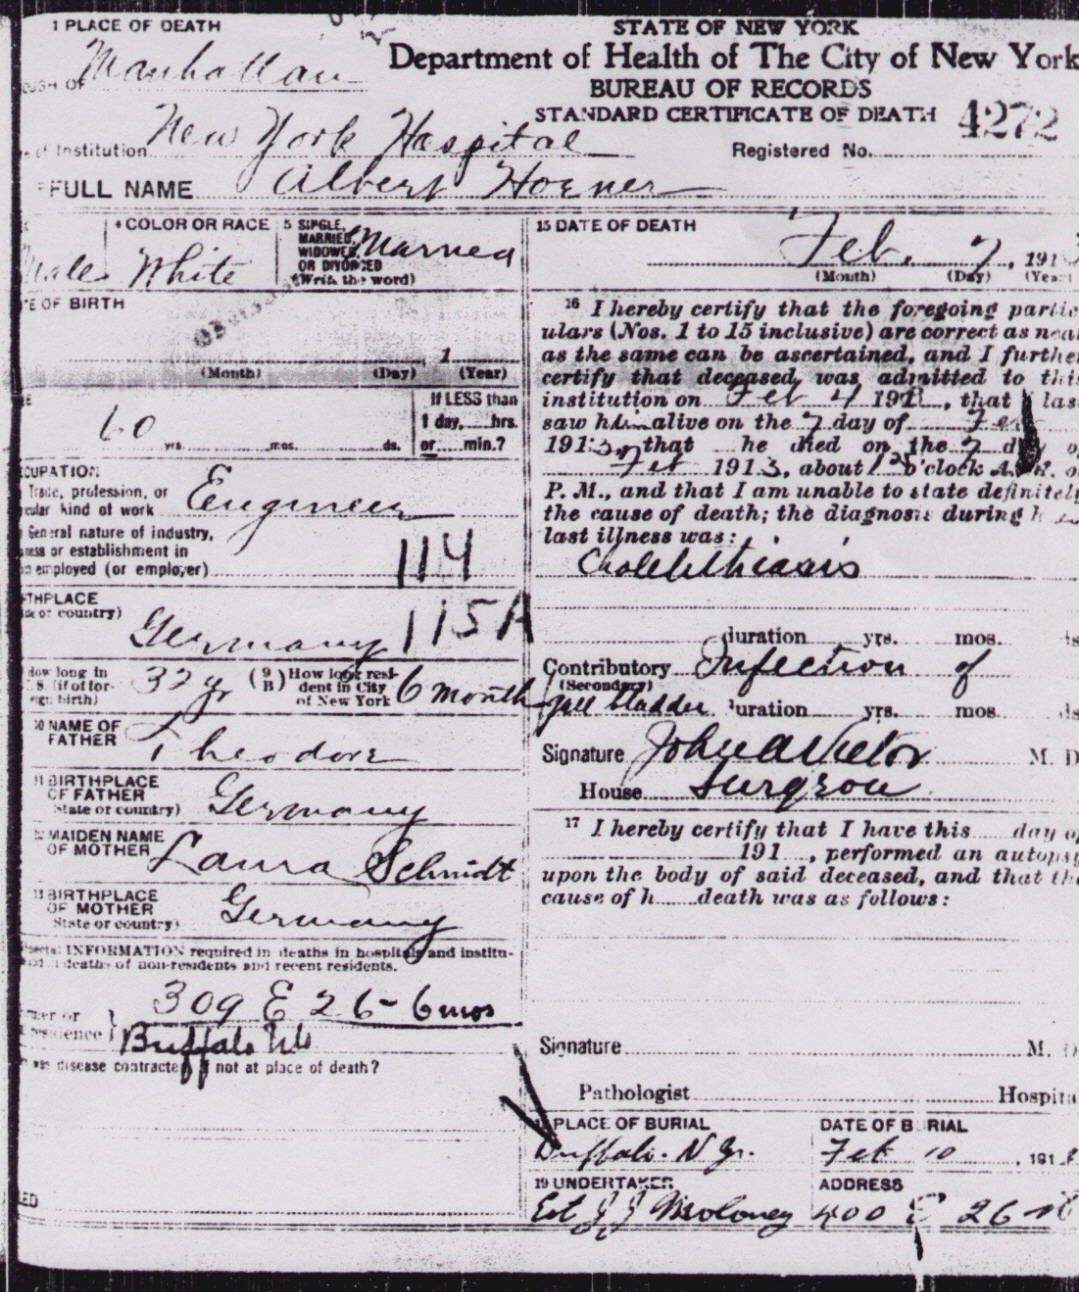 1 PLACE OF DEATH
STATE OF NEW YORK
Department of Health of The City of New York
BUREAU OF RECORDS
STANDARD CERTIFICATE OF DEATH
4272
Registered No.
OF Manhattan
of Institution New York Hospital
FULL NAME Albert Hoener
4 COLOR OR RACE
White
5 SINGLE, MARRIED, WIDOWED, OR DIVORCED
(Write the word)
Married
Male
E OF BIRTH
1
(Month) (Day) (Year)
60
yrs. mos. ds.
If LESS than
1 day, hrs.
or min.?
CUPATION
Trade, profession, or
cular kind of work Engineer
General nature of industry,
ness or establishment in
employed (or employer)
114
115A
THPLACE
or country)
Germany
How long in
S. (if of for-
eign birth) 32 yr
(9 B) How long resi-
dent in City
of New York 6 month
10 NAME OF
FATHER Theodore
11 BIRTHPLACE
OF FATHER
State or country) Germany
12 MAIDEN NAME
OF MOTHER Laura Schmidt
13 BIRTHPLACE
OF MOTHER
State or country) Germany
INFORMATION required in deaths in hospitals and institu-
deaths of non-residents and recent residents.
309 E 26 - 6 mos
or
residence } Buffalo
was disease contracted if not at place of death?
15 DATE OF DEATH
Feb. 7, 191
(Month) (Day) (Year)
16 I hereby certify that the foregoing partic
ulars (Nos. 1 to 15 inclusive) are correct as near
as the same can be ascertained, and I further
certify that deceased was admitted to this
institution on Feb 4 191 , that I last
saw him alive on the 7 day of Feb
1913, that he died on the 7 d of
Feb 1913, about o'clock A.M. or
P. M., and that I am unable to state definitely
the cause of death; the diagnosis during h
last illness was:
Cholelithiasis
duration yrs. mos. ds
Contributory Infection of
(Secondary)
gall bladder duration yrs. mos. ds
Signature John A Vietor M. D
House Surgeon
17 I hereby certify that I have this day of
191 , performed an autopsy
upon the body of said deceased, and that th
cause of h death was as follows:
Signature M. D
Pathologist Hospita
PLACE OF BURIAL
Buffalo. N.Y.
DATE OF BURIAL
Feb 10, 191
19 UNDERTAKER
Est J J Moloney
ADDRESS
400 E 26 st